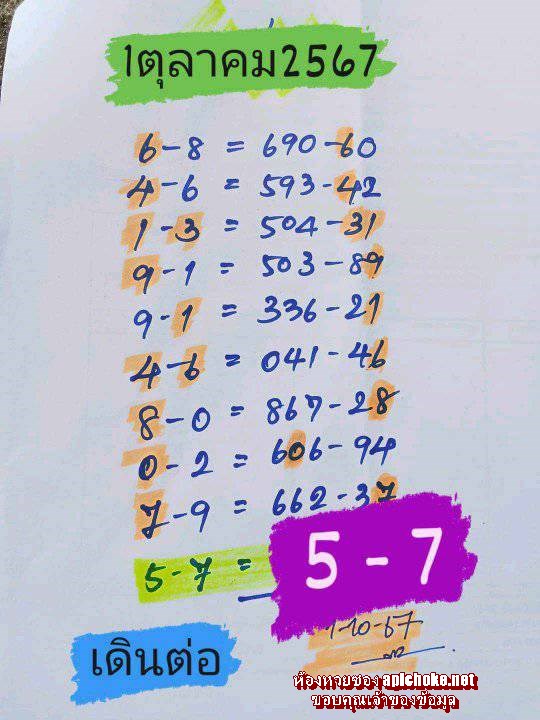 1ตุลาคม2567
6-8 = 690-60
4-6 = 593-42
1-3 = 504-31
9-1 = 503-89
9-1 = 336-21
4-6 = 041-46
8-0 = 867-28
0-2 = 606-94
7-9 = 662-37
5-7 =
5 - 7
1-10-67
เดินต่อ
ห้องหวยซอง apichoke.net
ขอบคุณเจ้าของข้อมูล